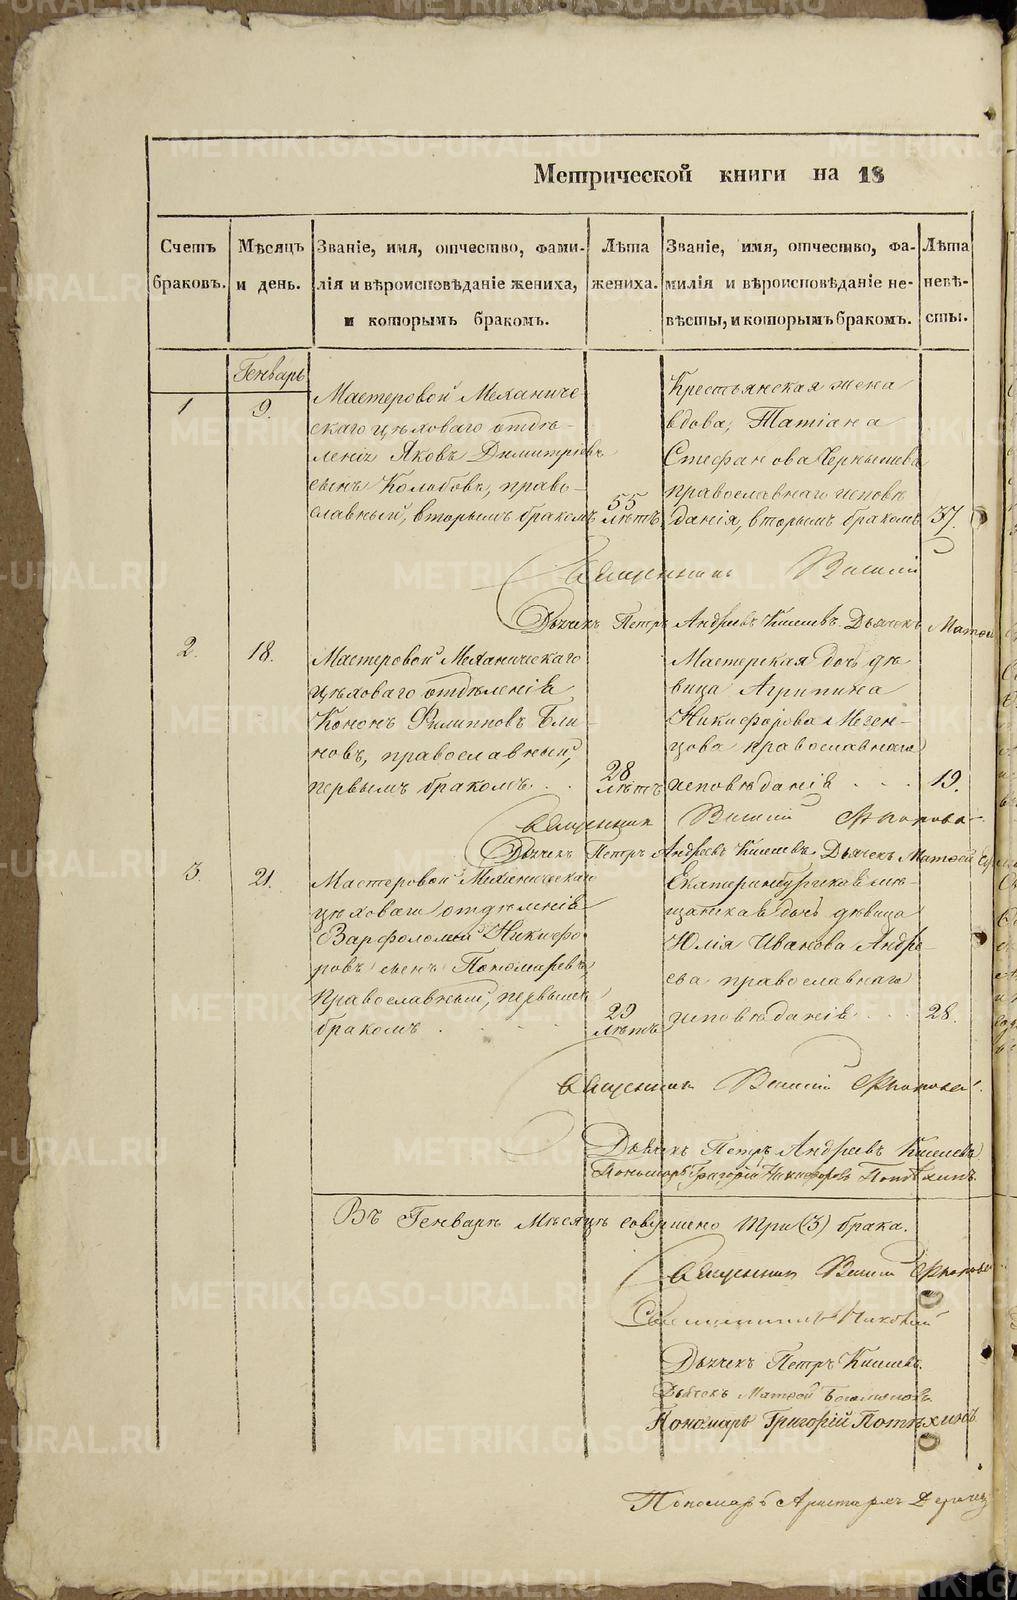 Метрической книги на 18
Счетъ браковъ.
Мѣсяцъ и день.
Званіе, имя, отчество, фами-
лія и вѣроисповѣданіе жениха,
и которымъ бракомъ.
Лѣта жениха.
Званіе, имя, отчество, фа-
милія и вѣроисповѣданіе не-
вѣсты, и которымъ бракомъ.
Лѣта невѣ-
сты.
Генварь
1
9.
Мастеровой Механиче
скаго цѣховаго отдѣ-
ленія Яковъ Димитріевъ
сынъ Колобовъ, право-
славный, вторымъ бракомъ
55
лѣтъ
Крестьянская жена
вдова, Татіана
Стефанова Чернышева
православнаго исповѣ
данія, вторымъ бракомъ
37.
Священникъ Василій
Дьячекъ Петръ Андреевъ Киселевъ. Дьячекъ Матѳей
2.
18.
Мастеровой Механическаго
цѣховаго отдѣленія
Кононъ Филипповъ Бли-
новъ, православный,
первымъ бракомъ. . .
28
лѣтъ
Мастерская дочь дѣ
вица Агрипина
Никифорова Мезен-
цова православнаго
исповѣданія . . . .
19.
Священникъ Василій
Дьячекъ Петръ Андреевъ Киселевъ, Дьячекъ Матѳей
3.
21.
Мастеровой Механическаго
цѣховаго отдѣленія
Варфоломей Никифо-
ровъ сынъ Пономаревъ,
православный, первымъ
бракомъ . . . . .
29
лѣтъ
Екатеринбургская мѣ-
щанская дочь дѣвица
Юлія Иванова Андре-
ева православнаго
исповѣданія . . .
28.
Священникъ Василій
Дьячекъ Петръ Андреевъ Киселевъ
Пономарь Григорій Никифоровъ Потѣхинъ.
Въ Генварѣ Мѣсяцѣ совершено три (3) брака.
Священникъ Василій
Священникъ Николай
Дьячекъ Петръ Киселевъ.
Дьячекъ Матѳей
Пономарь Григорій Потѣхинъ
Пономарь Аристархъ
METRIKI.GASO-URAL.RU